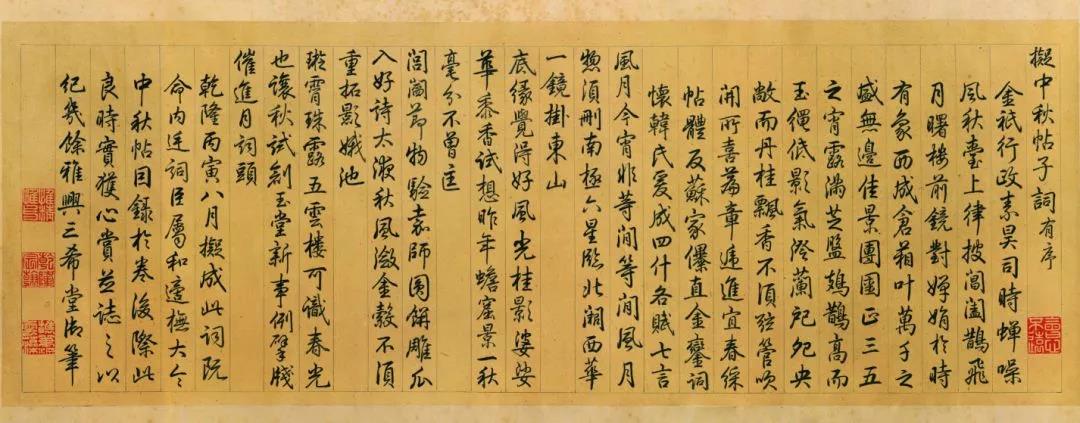 擬中秋帖子詞有序
金祇行政素昊司時蟬噪
風秋臺上律披閶闔鵲飛
月曙樓前鏡對嬋娟於時
有象西成倉箱叶萬千之
盛無邊佳景團圞正三五
之宵露滿芝盤鳷鵲高而
玉繩低影氣浮蘭戺兜央
敞而丹桂飄香不須弦管吹
開所喜篇章遞進宜春綵
帖體反蘇家儤直金鑾詞
懷韓氏爰成四什各賦七言
風月今宵非等閒等閒風月
總須刪南極六星臨北闕西華
一鏡掛東山
底緣覺得好風光桂影婆娑
華黍香試想昨年蟾窟景一秋
毫分不曾
閶闔節物驗嘉師團餅雕瓜
入好詩太液秋風瀲金縠不須
重拓影娥池
璇霄珠露五雲樓可識春光
也讓秋試創玉堂新事例擘牋
催進月詞頭
乾隆丙寅八月擬成此詞既
命內廷詞臣屬和還橅大令
中秋帖因錄於卷後際此
良時實獲心賞並誌之以
紀幾餘雅興三希堂御筆